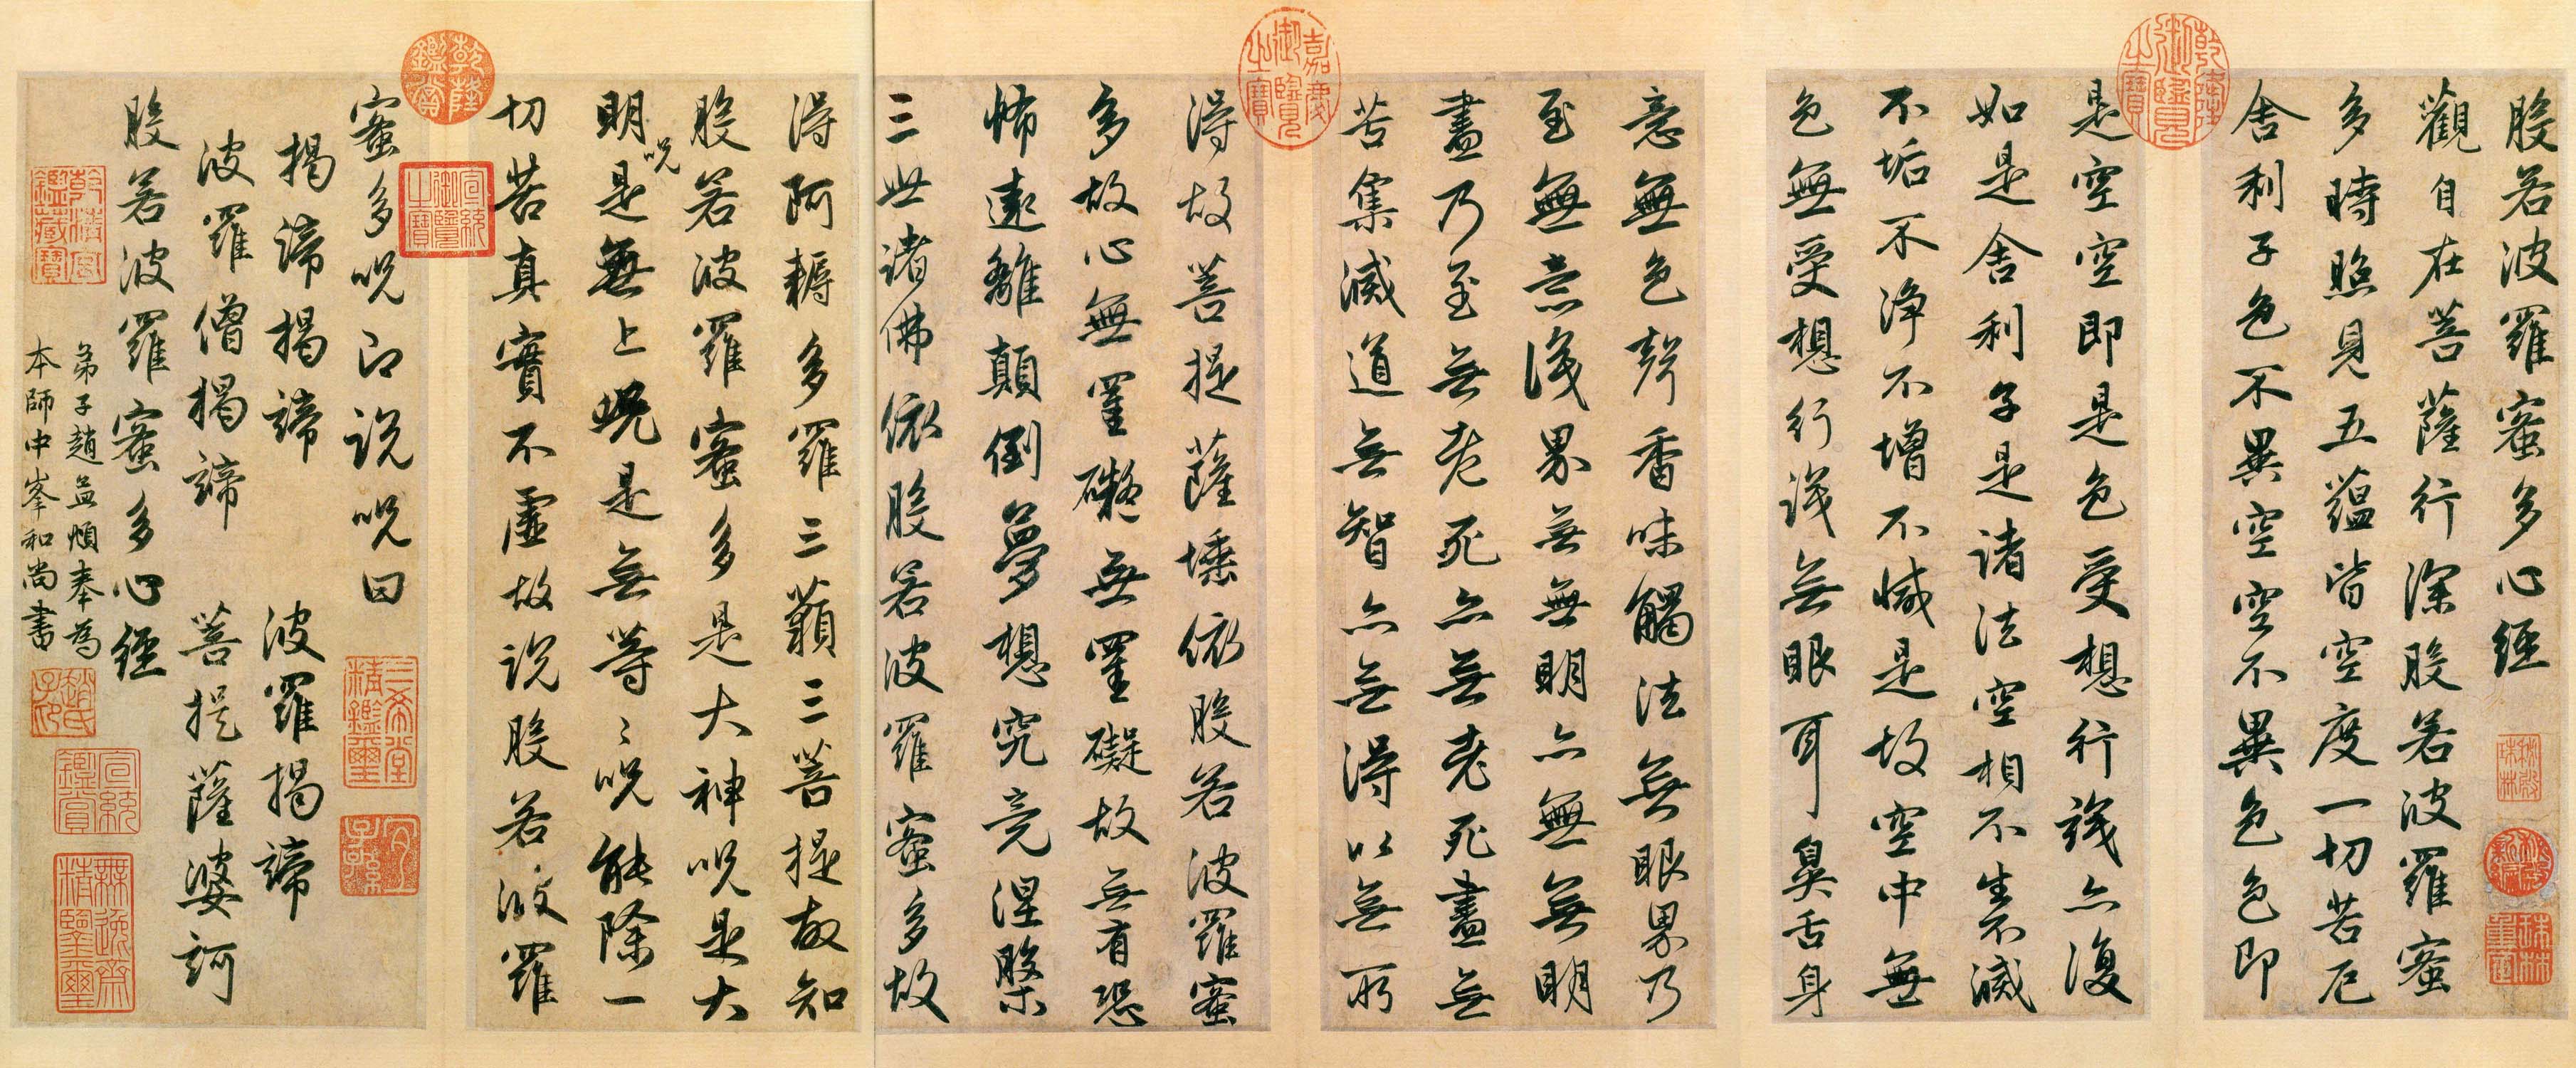 般若波羅蜜多心經
觀自在菩薩行深般若波羅蜜
多時照見五蘊皆空度一切苦厄
舍利子色不異空空不異色色即
是空空即是色受想行識亦復
如是舍利子是諸法空相不生不滅
不垢不淨不增不減是故空中無
色無受想行識無眼耳鼻舌身
意無色聲香味觸法無眼界乃
至無意識界無無明亦無無明
盡乃至無老死亦無老死盡無
苦集滅道無智亦無得以無所
得故菩提薩埵依般若波羅蜜
多故心無罣礙無罣礙故無有恐
怖遠離顛倒夢想究竟涅槃
三世諸佛依般若波羅蜜多故
得阿耨多羅三藐三菩提故知
般若波羅蜜多是大神呪是大
明呪是無上呪是無等〻呪能除一
切苦真實不虛故說般若波羅
蜜多呪即說呪曰
揭諦揭諦 波羅揭諦
波羅僧揭諦 菩提薩婆訶
般若波羅蜜多心經
弟子趙孟頫奉為
本師中峯和尚書
秘殿珠林
秘殿新編
珠林重定
乾隆御覽之寶
嘉慶御覽之寶
乾隆鑑賞
宣統御覽之寶
三希堂精鑑璽
宜子孫
乾清宮鑑藏寶
趙氏子昂
宣統鑑賞
無逸齋精鑒璽